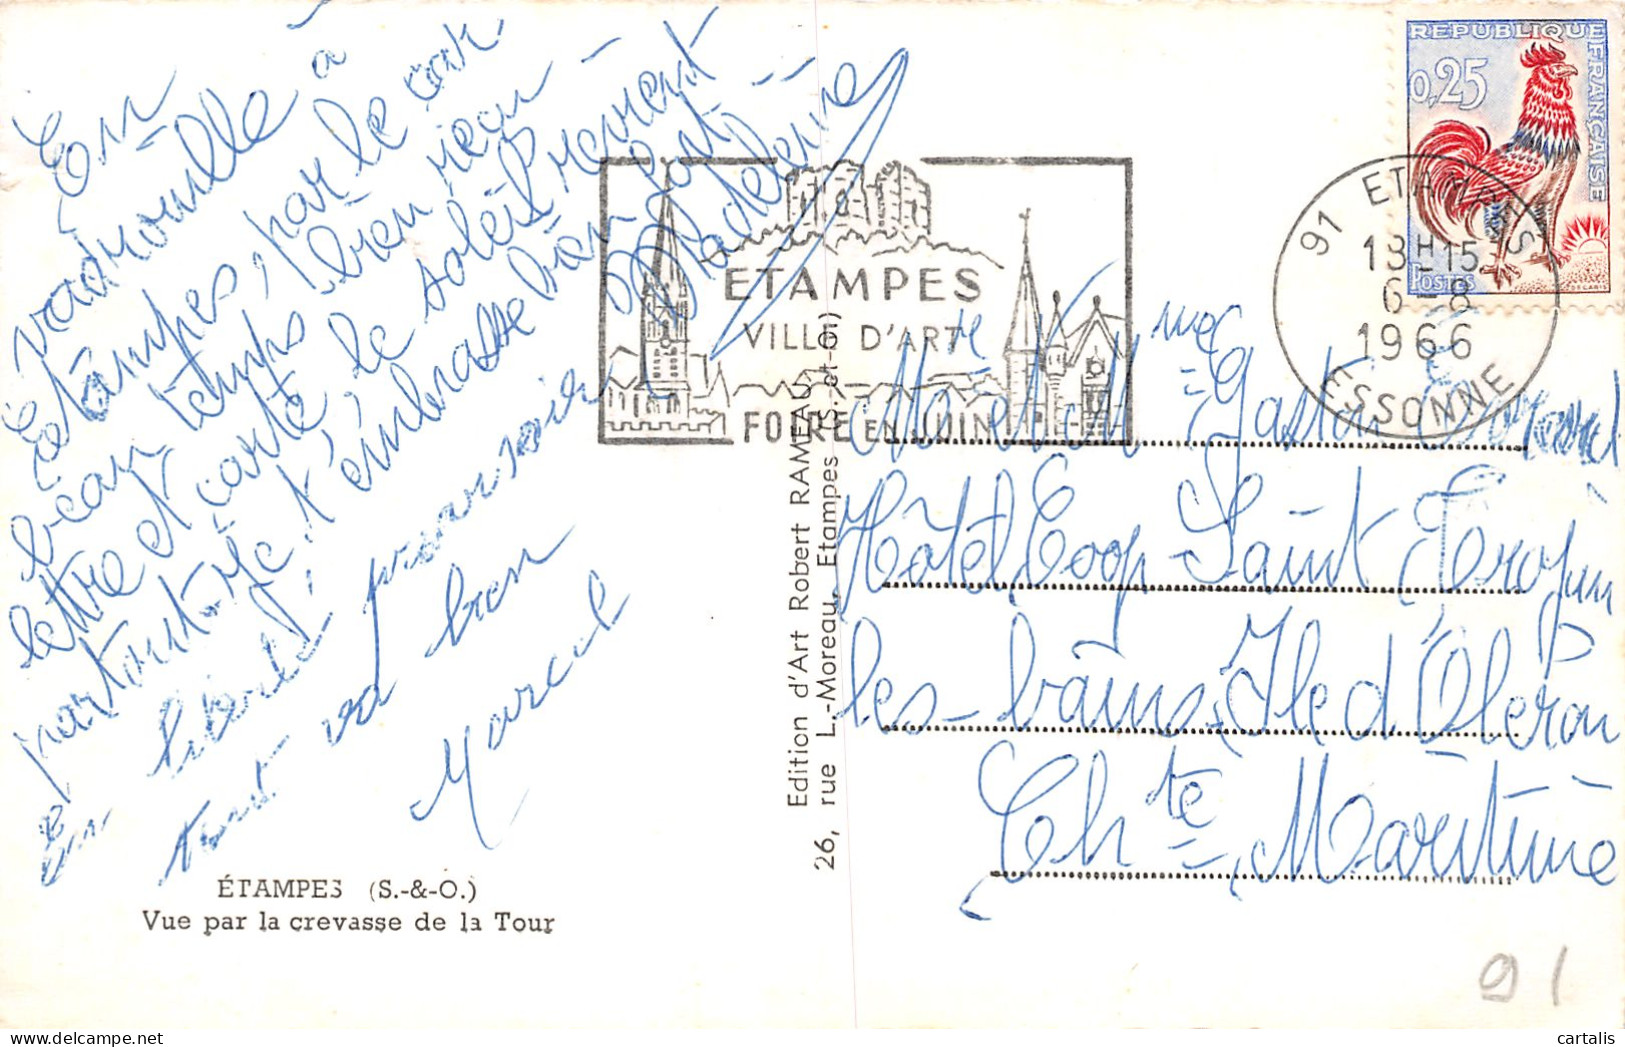 En
vadrouille à
Étampes, par le car
beau temps, bien reçu
lettre et carte le soleil revient
partout, Mc. t'embrasse bien fort
Madeleine
En liberté provisoire
tout va bien
Marcel
ÉTAMPES (S.-&-O.)
Vue par la crevasse de la Tour
Edition d'Art Robert RAMEAU
26, rue L.-Moreau, Etampes (S.-et-O.)
ETAMPES
VILLE D'ART
FOIRE EN JUIN
REPUBLIQUE FRANÇAISE
0,25
POSTES
DECARIS
91 ETAMPES
13H15
6-8
1966
ESSONNE
Mr et Mme Gaston
Hôtel Coop Saint Trojan
les-bains, Ile d'Oléron
Chte - Maritime
91
cartalis sur Delcampe.net